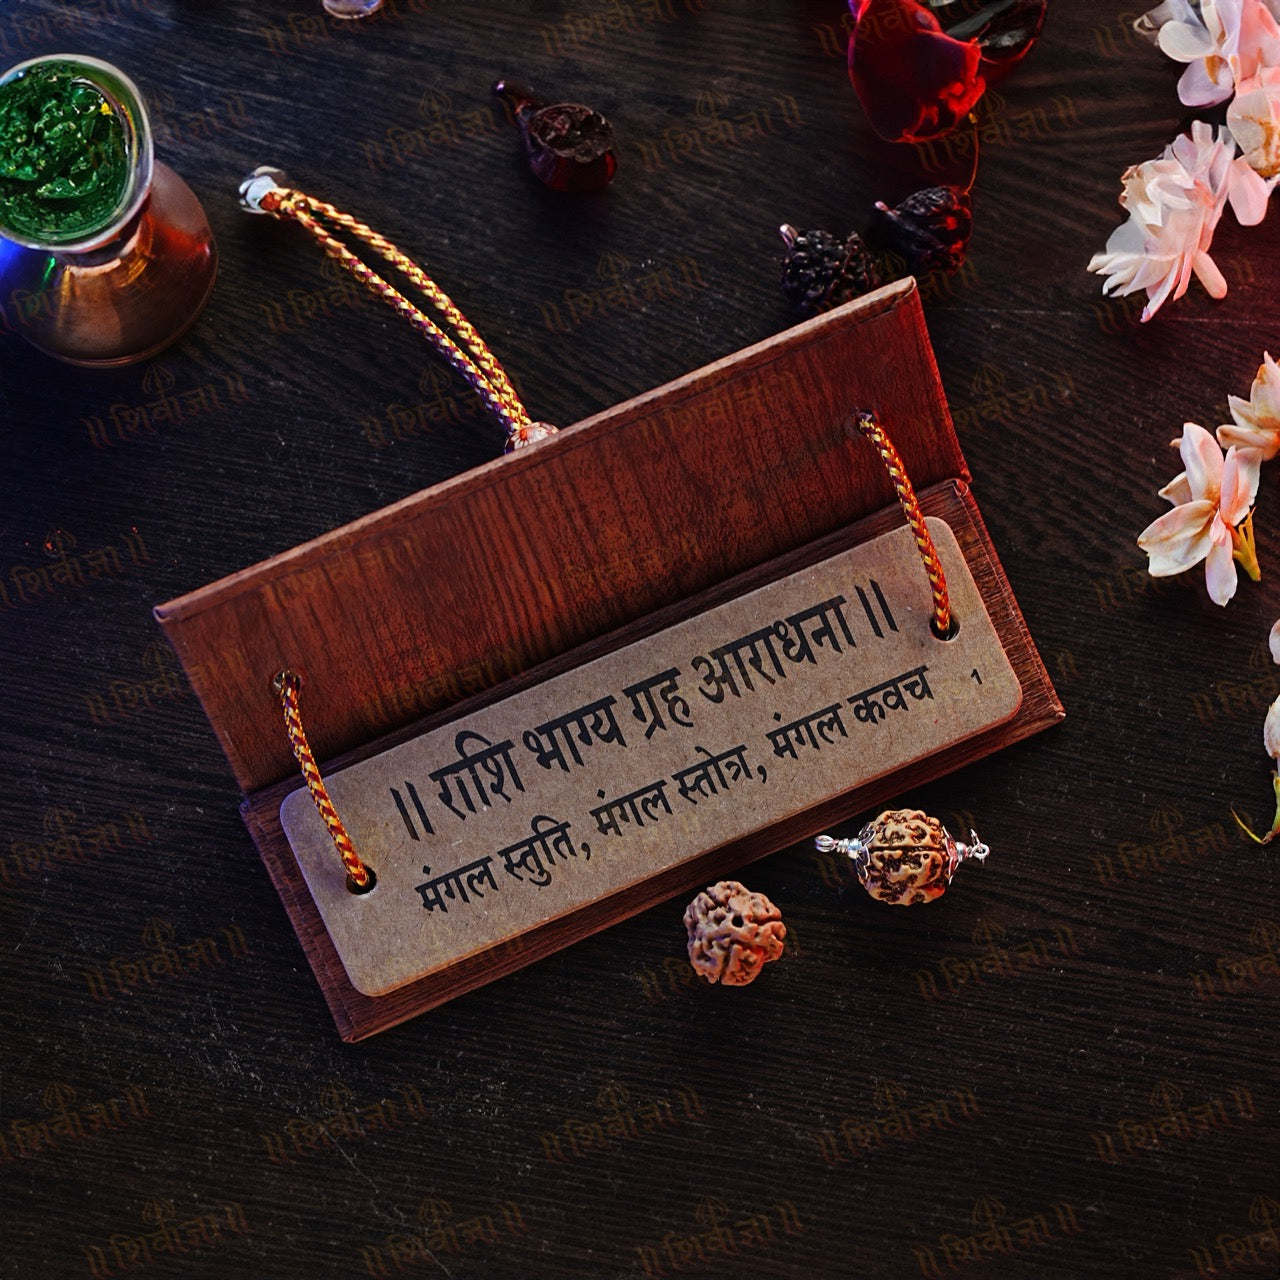 ॥ राशि भाग्य ग्रह आराधना ॥
मंगल स्तुति, मंगल स्तोत्र, मंगल कवच
१
॥ शिवीज्ञा ॥